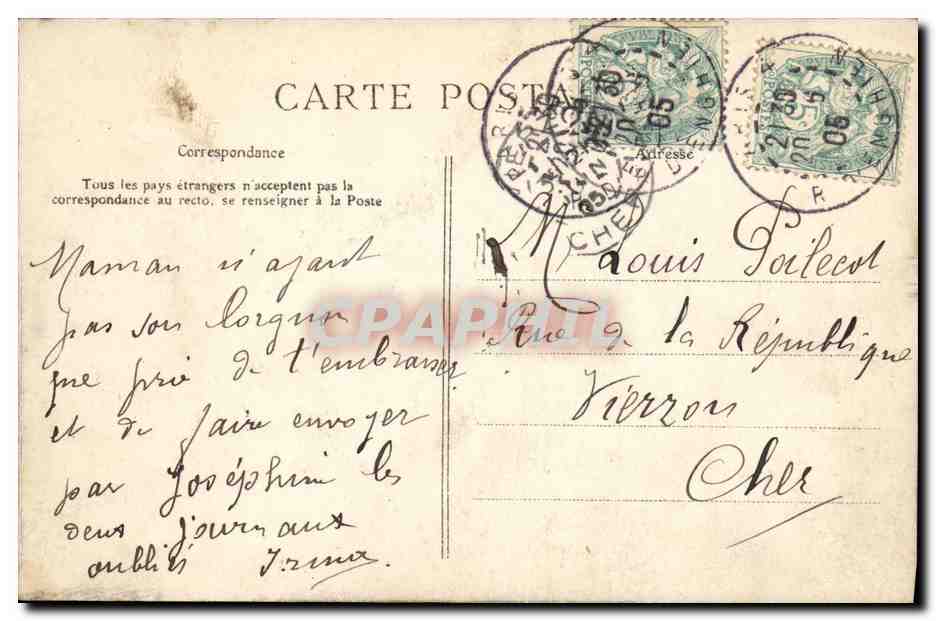 CARTE POSTALE
Correspondance
Adresse
Tous les pays étrangers n'acceptent pas la
correspondance au recto, se renseigner à la Poste
Maman n'ayant
pas son lorgnon
me prie de t'embrasser
et de faire envoyer
par Joséphine les
deux journaux
oubliés Irma.
M Louis Poilecot
Rue de la République
Vierzon
Cher
CPAPHIL
PARIS
21 30
20 5
05
R. D'ENGHIEN
PARIS
21 30
20 5
05
R. D'ENGHIEN
CHER